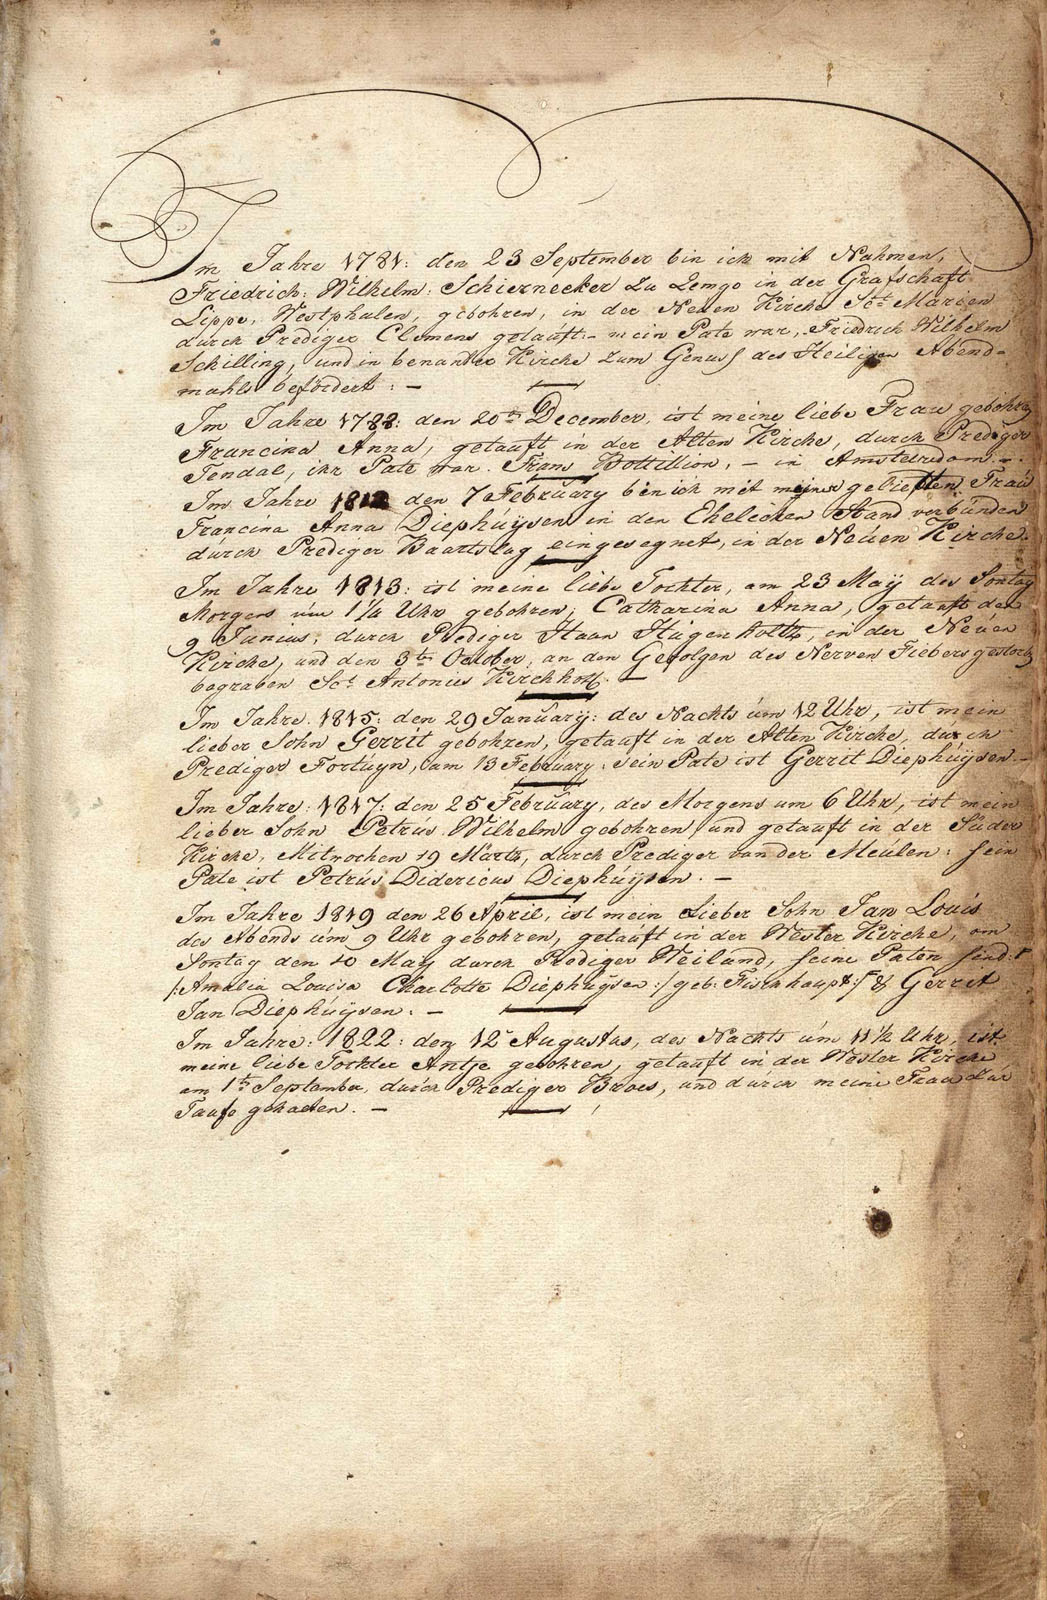 Im Jahre 1781: den 23 September bin ich mit Nahmen,
Friedrich: Wilhelm: Schiernecker zu Lemgo in der Grafschaft
Lippe, Westphalen, gebohren, in der Neuen Kirche Sct Marien
durch Prediger Clemens getauft:- mein Pate war, Friedrich Wilhelm
Schilling, und in benanter Kirche zum Genuss des Heiligen Abend=
mahls befördert: -
Im Jahre 1788: den 20ten December, ist meine liebe Frau gebohren
Francina Anna, getauft in der Alten Kirche, durch Prediger
Tendal, ihr Pate war. Frans Bottillion, - in Amsterdam.-.
Im Jahre 1812 den 7 February bin ich mit meiner geliebten Frau
Francina Anna Diephúÿsen in den Ehelechen Stand verbúnden
durch Prediger Baartslag eingesegnet, in der Neúen Kirche.
Im Jahre 1813: ist meine liebe Tochter, am 23 Maÿ des Sontag
Morgens úm 1¼ Uhr gebohren; Catharina Anna, getauft den
9 Junius, dúrch Prediger Haan Húgenholtz, in der Neúen
Kirche, und den 3ten October, an den Gefolgen des Nerven Fiebers gestorb
begraben Sct Antonius Kirchhoff. -
Im Jahre. 1815: den 29 Janúary: des Nachts úm 12 Uhr, ist mein
lieber Sohn Gerrit gebohren, getauft in der Alten Kirche, dúrch
Prediger Fortuyn, am 13 February: sein Pate ist Gerrit Diephúÿsen.-
Im Jahre: 1817: den 25 February, des Morgens um 6 Uhr, ist mein
lieber Sohn Petrús Wilhelm gebohren und getauft in der Súder
Kirche, Mitwochen 19 Martz, durch Prediger van der Meúlen: sein
Pate ist Petrús Didericus Diephúÿsen. -
Im Jahre 1819 den 26 April, ist mein Lieber Sohn Jan Louis
des Abends úm 9 Uhr gebohren, getaúft in der Wester Kirche, am
Sontag den 10 Maÿ durch Prediger Weiland, seine Paten sind:
/:Amalia Louisa Charlotte Diephúÿsen:/ geb: Fischhaupt:/ & Gerrit
Jan Diephúÿsen: -
Im Jahre: 1822: den 12 Augustus, des Nachts úm 11½ Uhr, ist
meine liebe Tochter Antje gebohren, getauft in der Wester Kirche
am 1ten September, durch Prediger Broes, und durch meine Frau zúr
Taufe gehalten. -